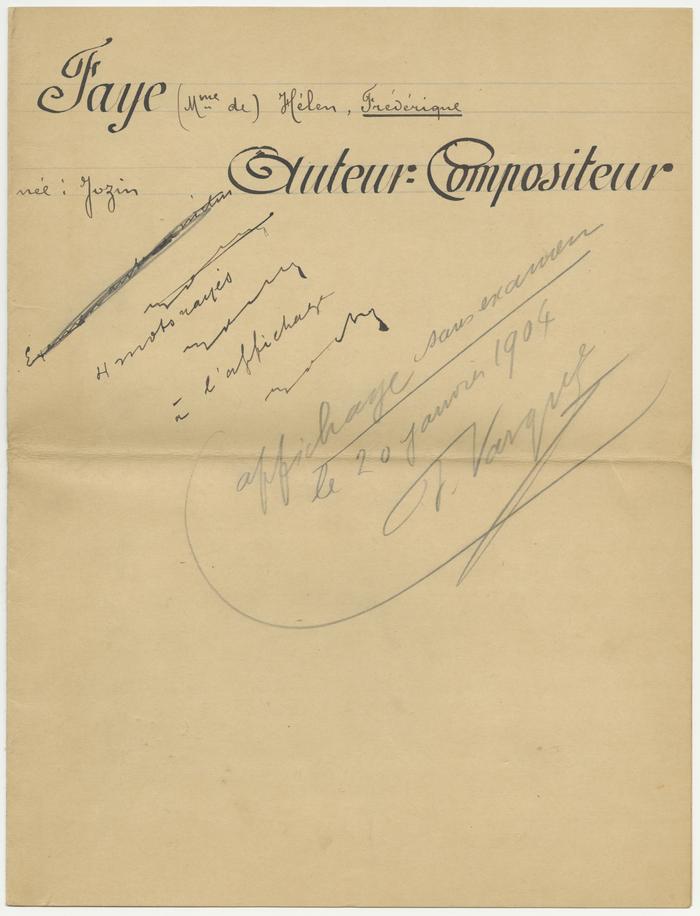 Faye (Mme de) Hélen, Frédérique
Auteur=Compositeur
née : Jozin
4 mots rayés
à l'affichage
affichage sans examen
le 20 janvier 1904